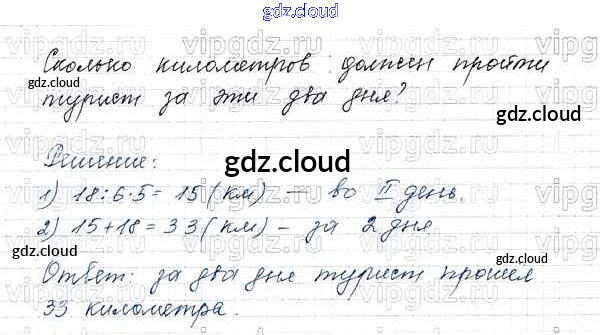 gdz.cloud
Сколько километров должен пройти
gdz.cloud
турист за эти два дня?
gdz.cloud
Решение:
gdz.cloud
1) 18:6·5= 15(км) — во II день.
2) 15+18=33(км) – за 2 дня
gdz.cloud
gdz.cloud
Ответ: за два дня турист прошел
33 километра.